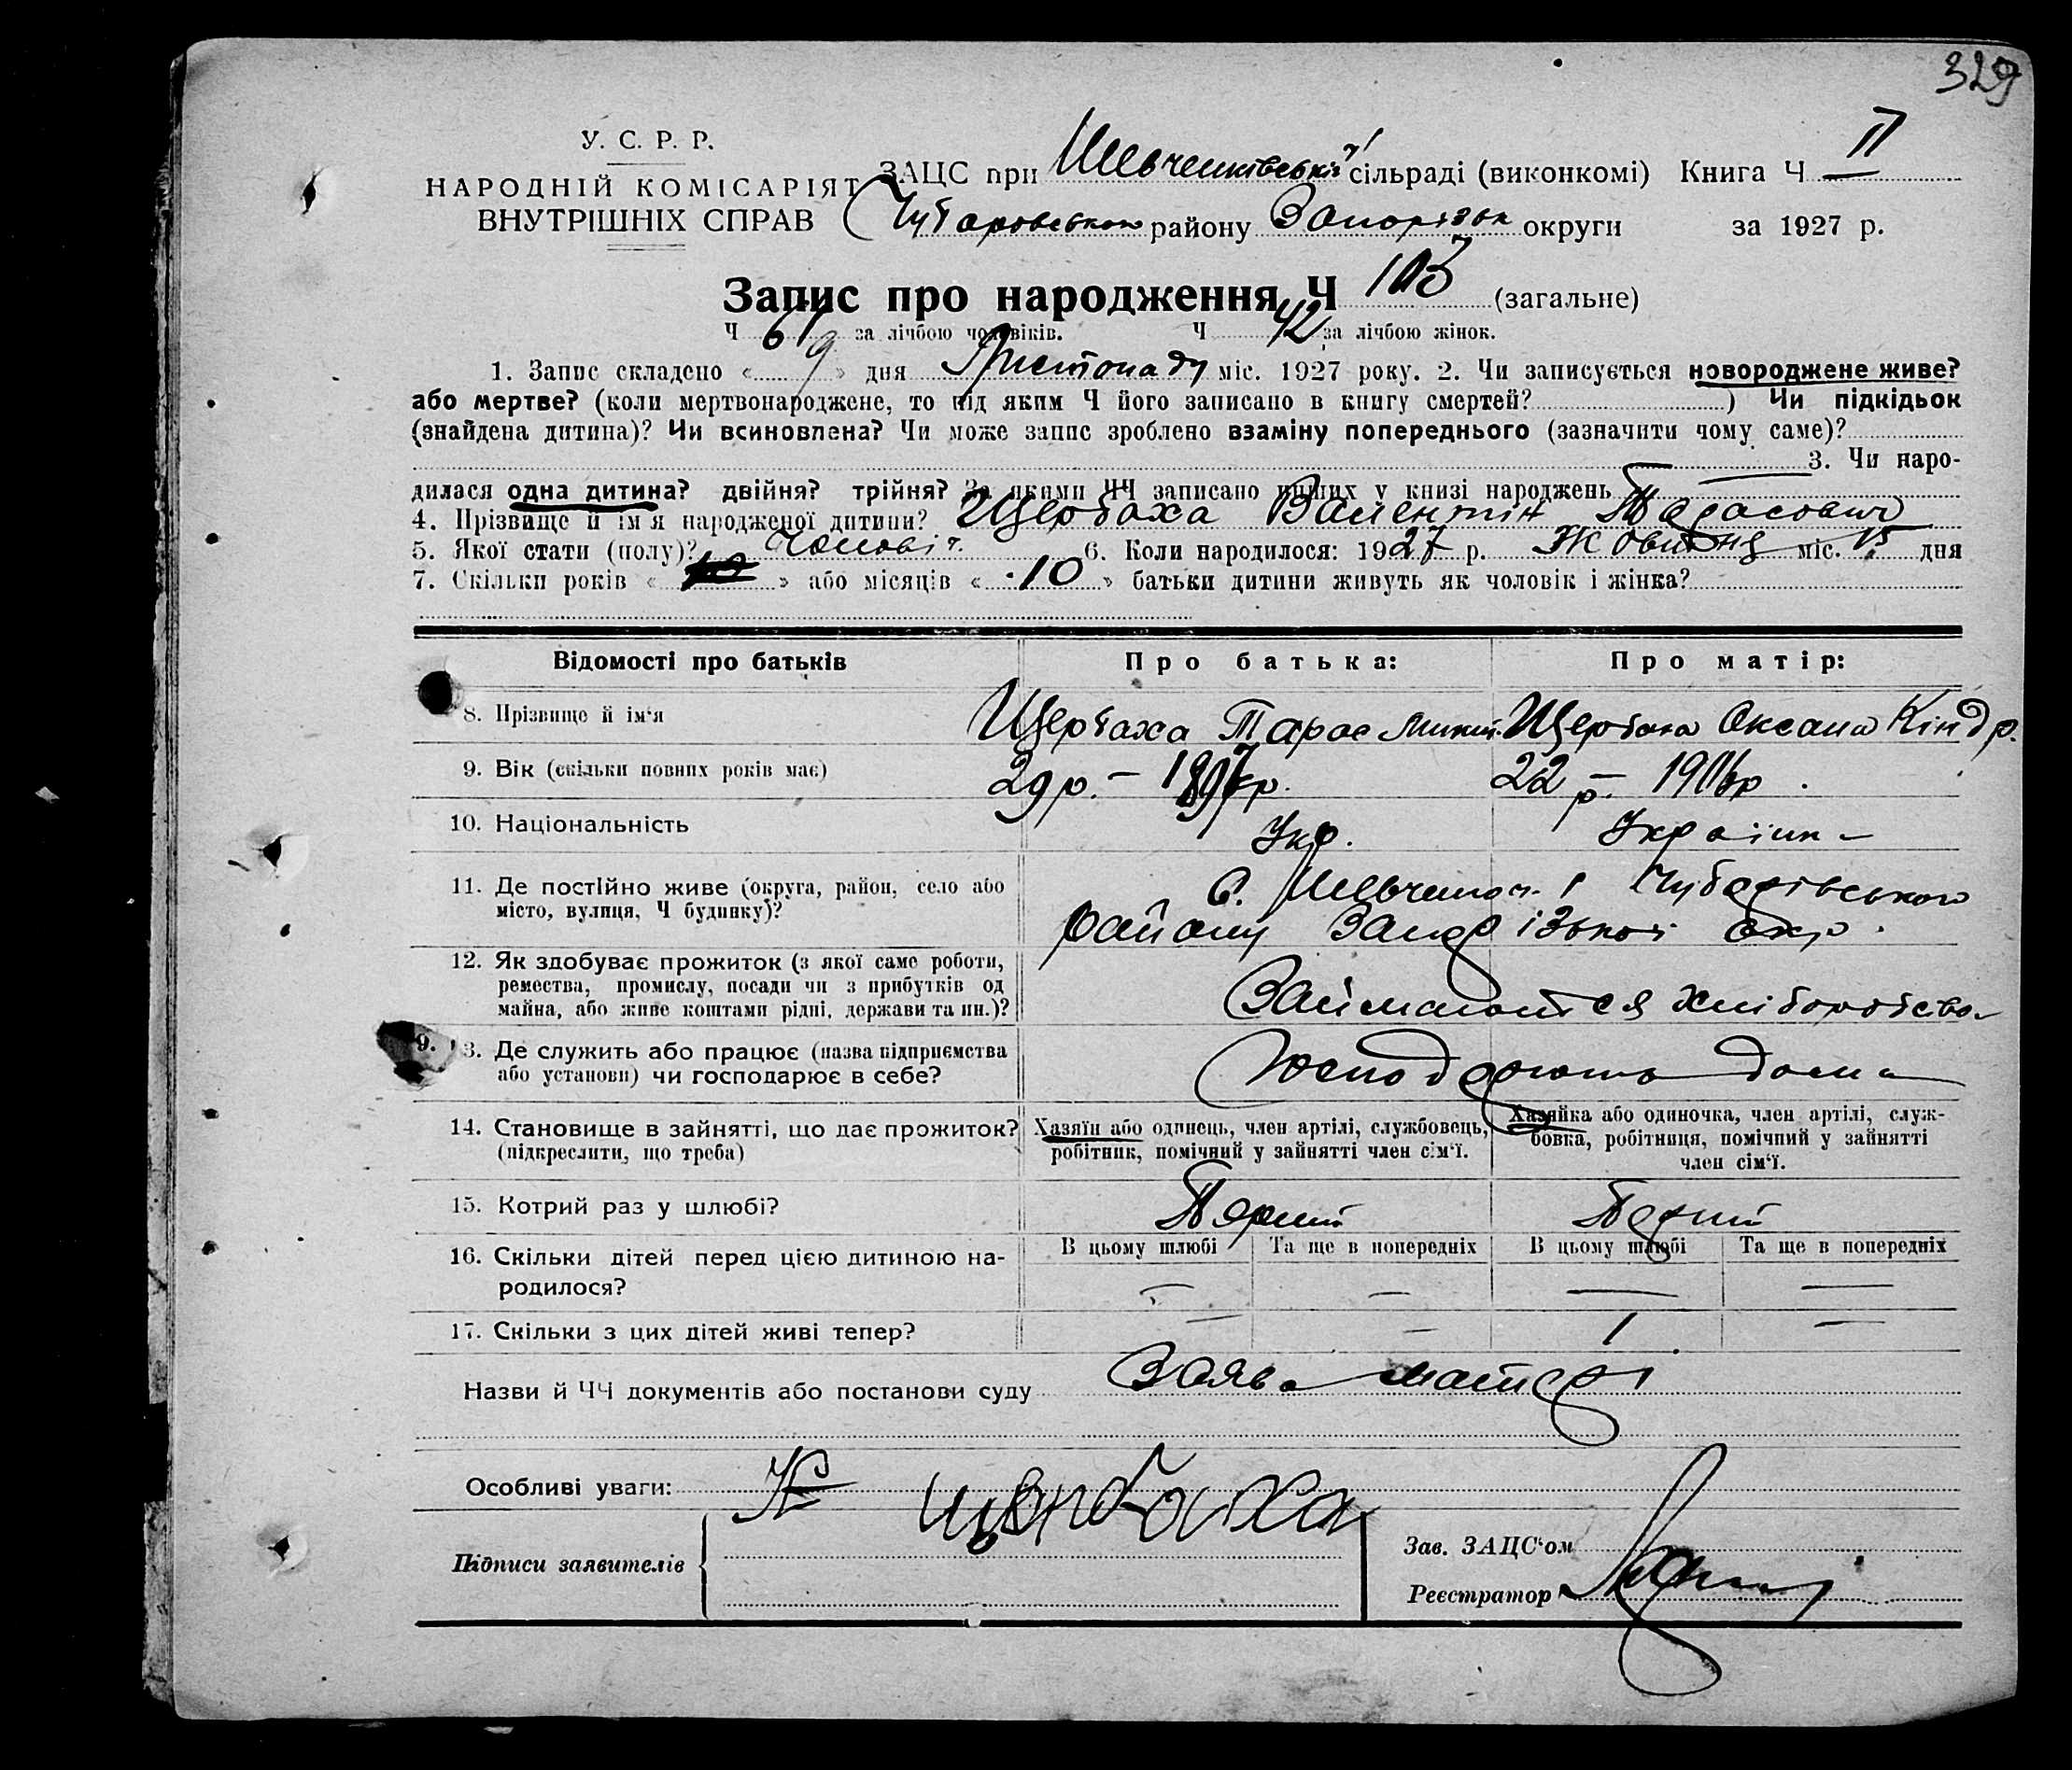 329
У. С. Р. Р.
НАРОДНІЙ КОМІСАРІЯТ
ВНУТРІШНІХ СПРАВ
ЗАЦС при Шевченківській сільраді (виконкомі) Книга Ч II
Чубарівського району Запорізьк округи за 1927 р.
Запис про народження Ч 103 (загальне)
Ч 61 за лічбою чоловіків. Ч 42 за лічбою жінок.
1. Запис складено « 9 » дня Листопаду міс. 1927 року. 2. Чи записується новороджене живе?
або мертве? (коли мертвонароджене, то під яким Ч його записано в книгу смертей?) Чи підкідьок
(знайдена дитина)? Чи всиновлена? Чи може запис зроблено взаміну попереднього (зазначити чому саме)?
3. Чи наро-
дилася одна дитина? двійня? трійня? За якими ЧЧ записано инших у книзі народжень
4. Прізвище й ім'я народженої дитини? Щербаха Валентін Тарасович
5. Якої стати (полу)? Чоловіч. 6. Коли народилося: 1927 р. Жовтня міс. 15 дня
7. Скільки років « » або місяців « 10 » батьки дитини живуть як чоловік і жінка?
Відомості про батьків
Про батька:
Про матір:
8. Прізвище й ім'я
Щербаха Тарас Микит.
Щербаха Оксана Кіндр.
9. Вік (скільки повних років має)
29 р. – 1897 р.
22 р. – 1906 р.
10. Національність
Укр.
Україин
11. Де постійно живе (округа, район, село або
місто, вулиця, Ч будинку)?
С. Шевченко 1 Чубарівського
району Запорізької окр.
12. Як здобуває прожиток (з якої саме роботи,
ремества, промислу, посади чи з прибутків од
майна, або живе коштами рідні, держави та ин.)?
Займаються хліборобство
9. 3. Де служить або працює (назва підприємства
або установи) чи господарює в себе?
Господарюють дома
14. Становище в зайнятті, що дає прожиток?
(підкреслити, що треба)
Хазяїн або одинець, член артілі, службовець,
робітник, помічний у зайнятті член сім'ї.
Хазяйка або одиночка, член артілі, служ-
бовка, робітниця, помічний у зайнятті
член сім'ї.
15. Котрий раз у шлюбі?
Перший
Перший
16. Скільки дітей перед цією дитиною на-
родилося?
В цьому шлюбі
Та ще в попередніх
В цьому шлюбі
Та ще в попередніх
— — — —
17. Скільки з цих дітей живі тепер?
— — 1 —
Назви й ЧЧ документів або постанови суду Заява матері
Особливі уваги:
Щербаха
Підписи заявителів
Зав. ЗАЦС'ом
Реєстратор